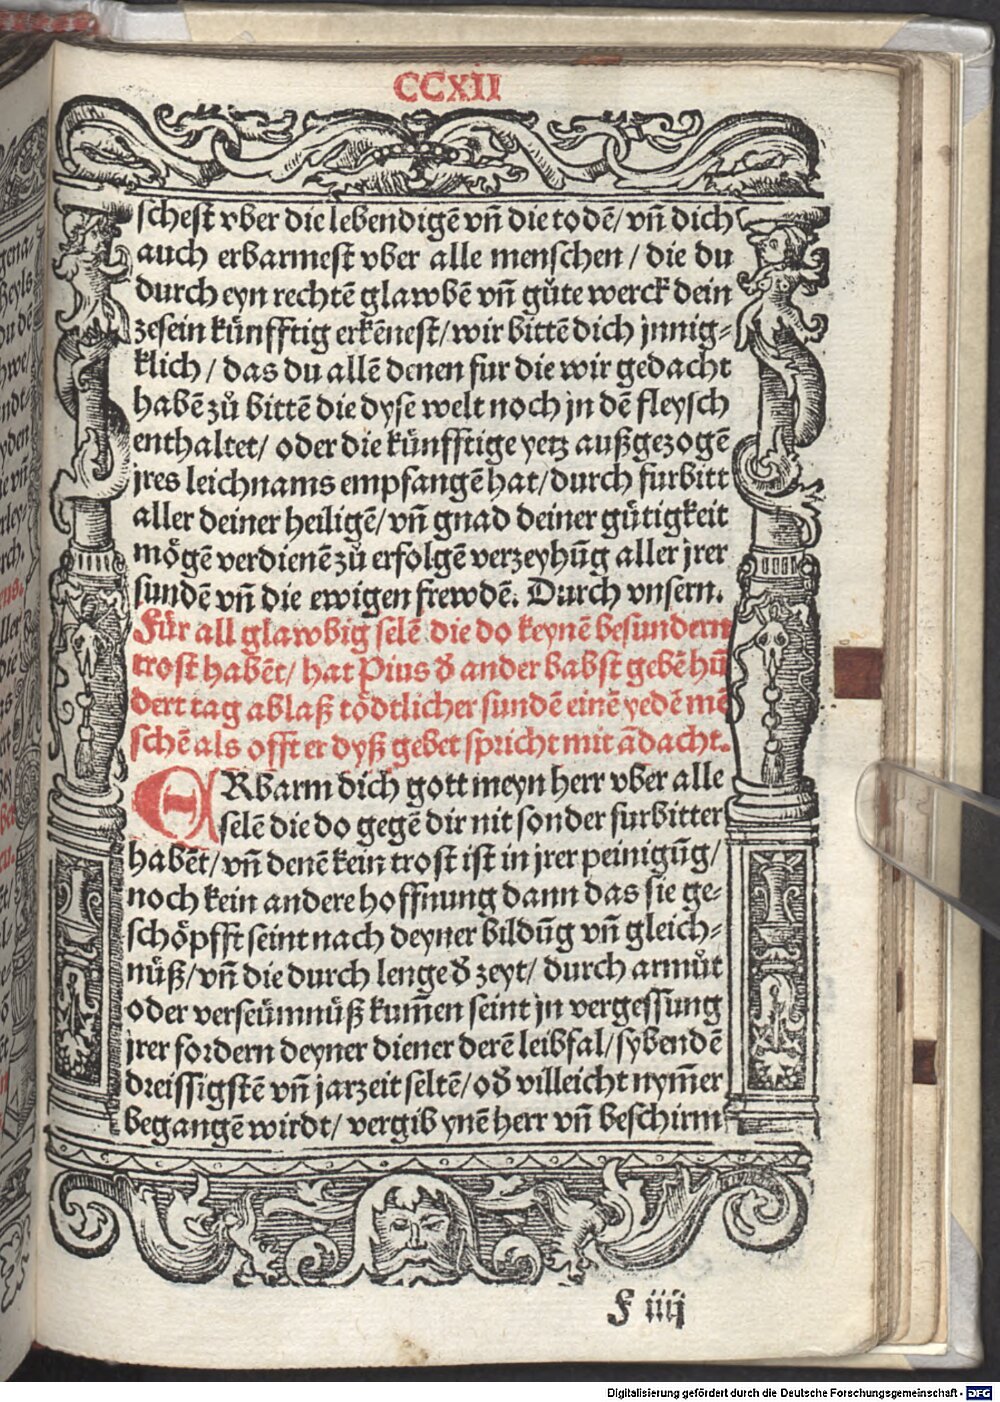 CCXII
schest vber die lebendigē vñ die todē/ vñ dich
auch erbarmest vber alle menschen / die du
durch eyn rechtē glawbē vñ gůte werck dein
zesein künfftig erkēnest/ wir bittē dich jnnig⸗
klich / das du allē denen fur die wir gedacht
habē zů bittē die dyse welt noch jn dē fleysch
enthaltet/ oder die künfftige yetz außgezogē
jres leichnams empfangē hat/ durch furbitt
aller deiner heiligē/ vñ gnad deiner gütigkeit
mögē verdienē zů erfolgē verzeyhūg aller jrer
sundē vñ die ewigen frewdē. Durch vnsern.
Für all glawbig selē die do keynē besundern
trost habēt/ hat Pius đ ander babst gebē hū
dert tag ablaß tödtlicher sundē einē yedē mē
schē als offt er dyß gebet spricht mit ādacht.
ERbarm dich gott meyn herr vber alle
selē die do gegē dir nit sonder furbitter
habēt/ vñ denē kein trost ist in jrer peinigūg/
noch kein andere hoffnung dann das sie ge⸗
schöpfft seint nach deyner bildūg vñ gleich⸗
nüß/ vñ die durch lenge đ zeyt/ durch armůt
oder verseümnüß kum̄en seint jn vergessung
jrer fordern deyner diener derē leibfal/ sybendē
dreissigstē vñ jarzeit seltē/ ođ villeicht nym̄er
begangē wirdt/ vergib ynē herr vñ beschirm
f iiij
Digitalisierung gefördert durch die Deutsche Forschungsgemeinschaft - DFG